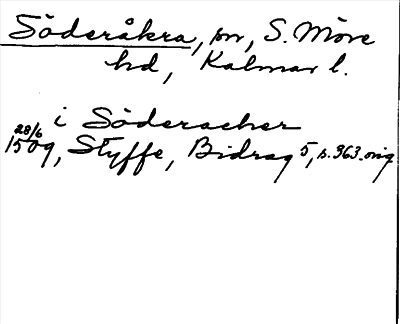 Söderåkra, sn, S. Möre
hd, Kalmar l.
i Söderacher
28/6
1509, Styffe, Bidrag 5, s. 363. orig